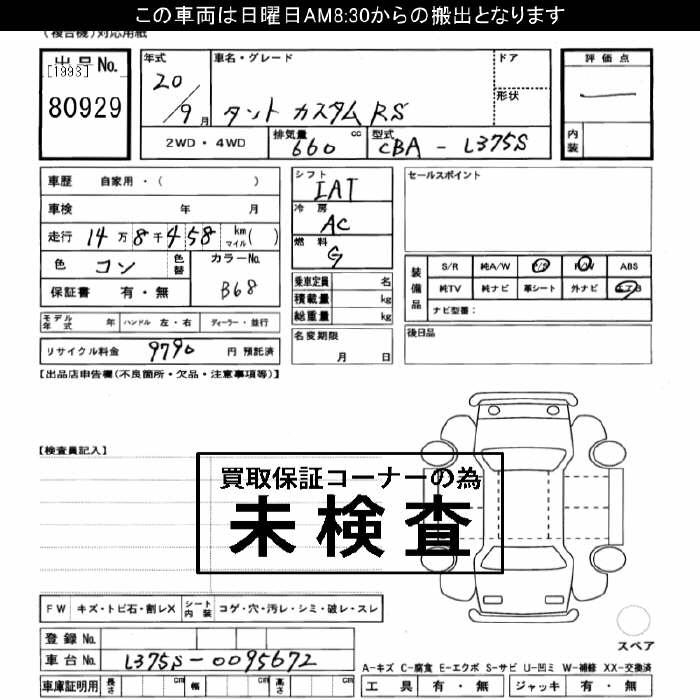 この車両は日曜日AM8:30からの搬出となります
(複合機)対応用紙
出品No.
[1993]
80929
年式
20/9月
車名・グレード
タント カスタム RS
ドア
形状
評価点
内装
2WD・4WD
排気量
660 cc
型式
CBA - L375S
車歴 自家用・( )
車検 年 月
走行 14万8千458 km マイル( )
色 コン 色替
カラーNo. B68
保証書 有・無
シフト
IAT
冷房
AC
燃料
G
乗車定員 名
積載量 kg
総重量 kg
セールスポイント
装備品
S/R 純A/W P/S P/W ABS
純TV 純ナビ 革シート 外ナビ エアB
ナビ型番:
モデル年式 年 ハンドル 左・右 ディーラー・並行
リサイクル料金 9790 円 預託済
名変期限
月 日
後日品
【出品店申告欄(不良箇所・欠品・注意事項等)】
【検査員記入】
買取保証コーナーの為
未検査
FW キズ・トビ石・割レX シート内装 コゲ・穴・汚レ・シミ・破レ・スレ
スペア
登録No.
車台No. L375S-0095672
A-キズ C-腐食 E-エクボ S-サビ U-凹ミ W-補修 XX-交換済
車庫証明用 長さ cm 幅 cm 高さ cm
工具 有・無 ジャッキ 有・無